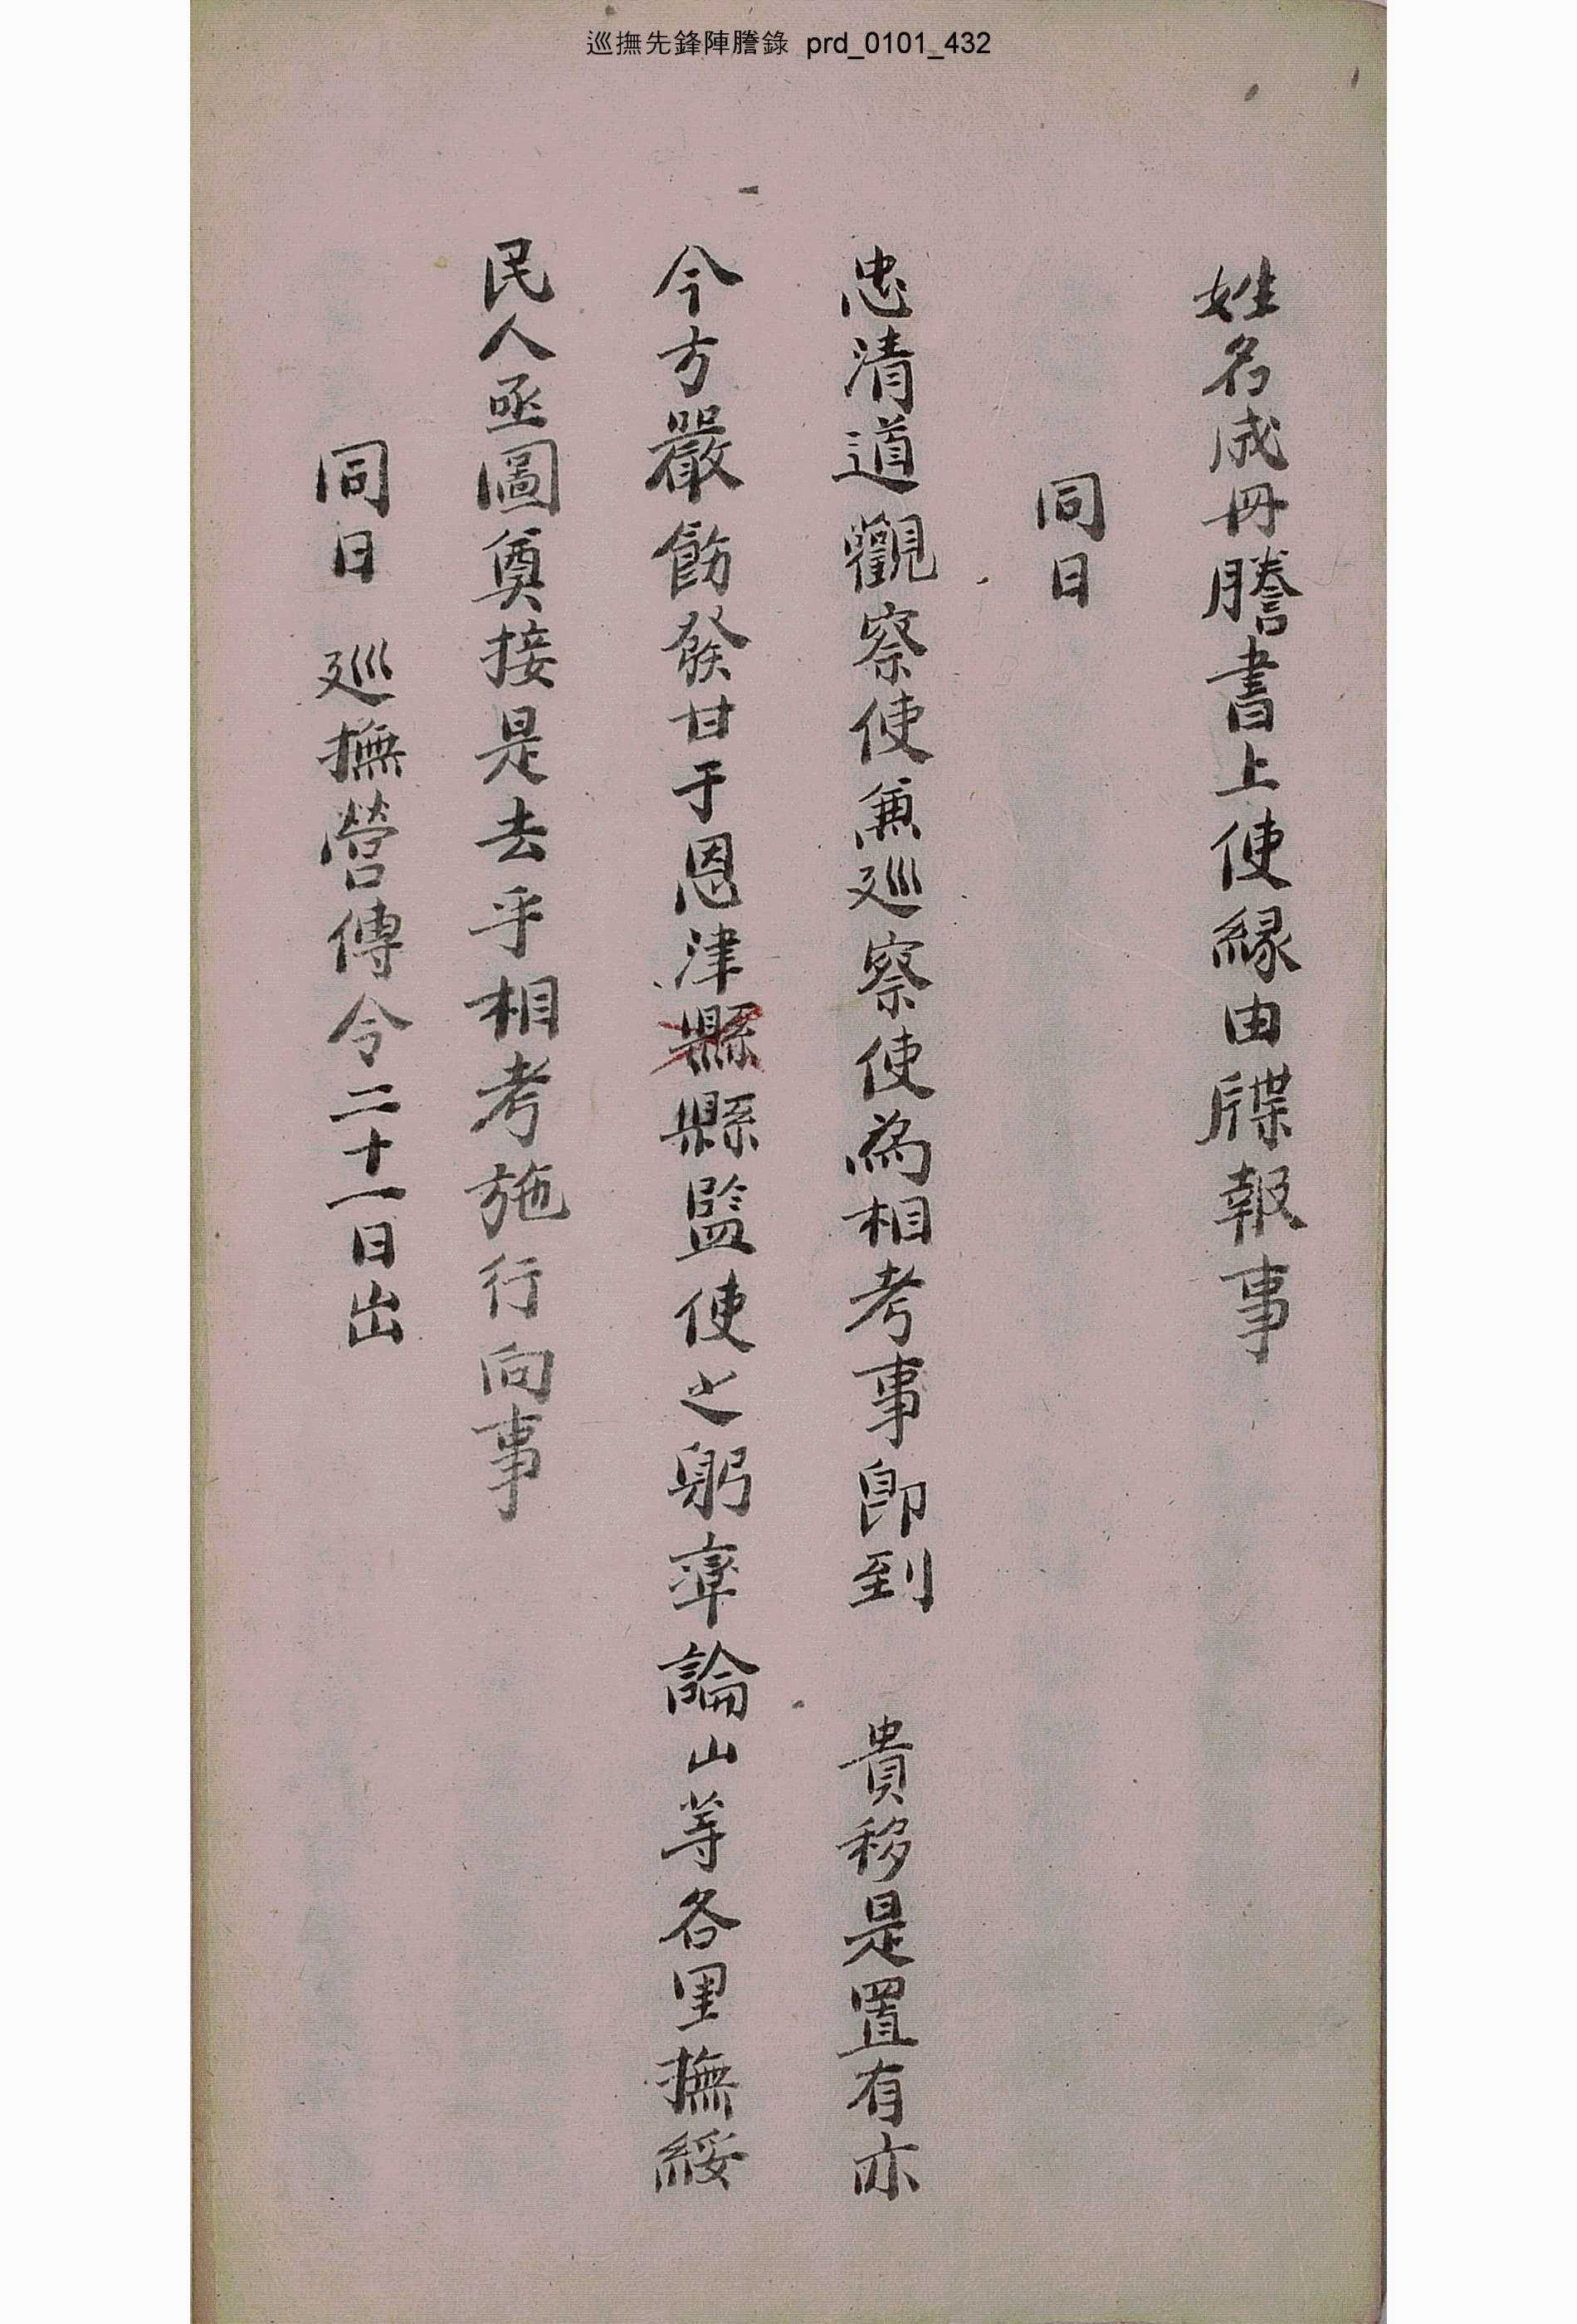 巡撫先鋒陣謄錄 prd_0101_432
姓名成冊謄書上使緣由牒報事
同日
忠清道觀察使兼巡察使為相考事卽到 貴移是置有亦
今方嚴飭發甘于恩津縣縣監使之躬率論山等各里撫綏
民人亟圖奠接是去乎相考施行向事
同日 巡撫營傳令二十一日出